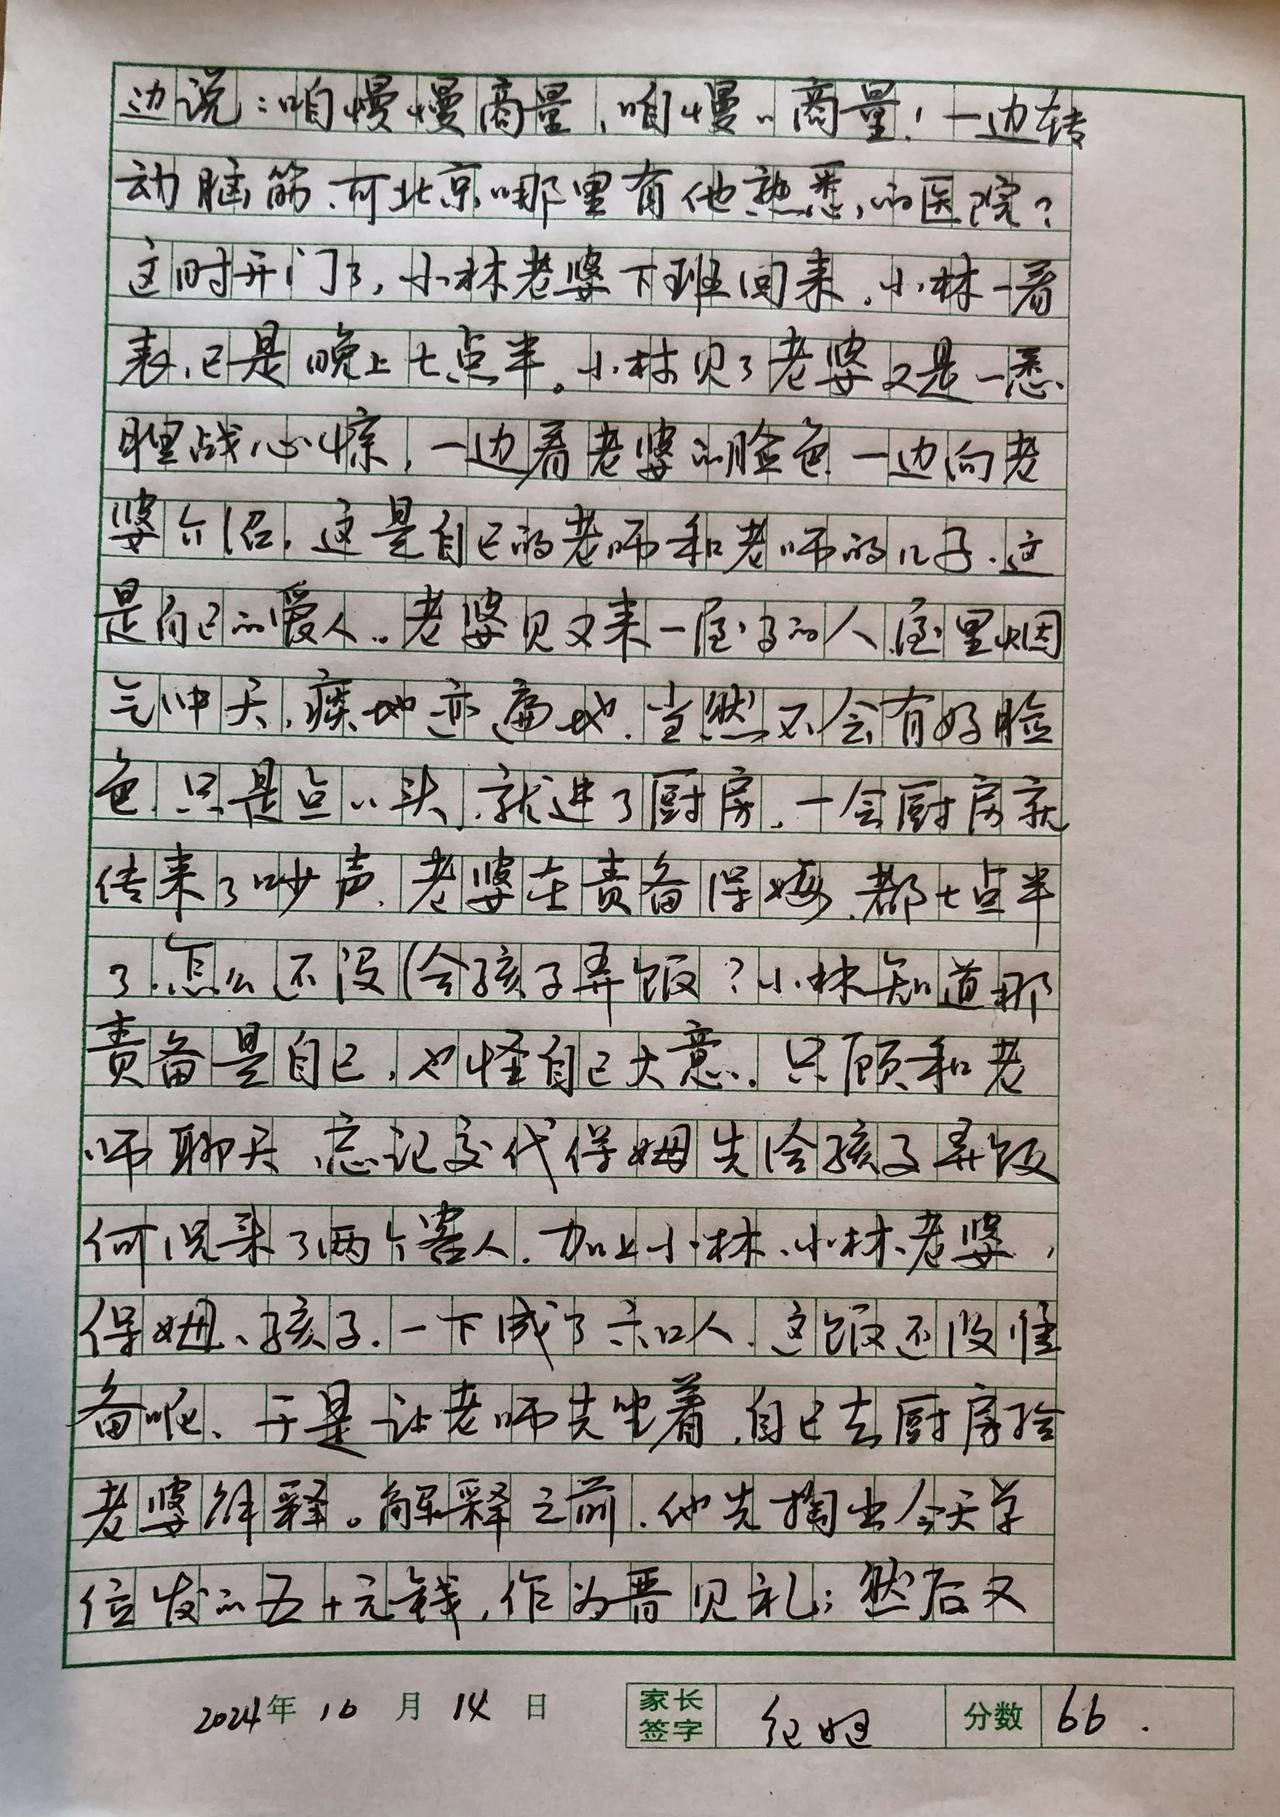 边说：咱慢慢商量，咱慢〃商量！一边转
动脑筋，可北京哪里有他熟悉的医院？
这时开门了，小林老婆下班回来，小林一看
表，已是晚上七点半。小林见了老婆又是一
胆战心惊，一边看老婆的脸色一边向老
婆介绍，这是自己的老师和老师的儿子，这
是自己的爱人。老婆见又来一屋子的人，屋里烟
气冲天，痰地亦遍地，当然不会有好脸
色，只是点〃头，就进了厨房，一会厨房就
传来了吵声，老婆在责备保姆，都七点半
了，怎么还没给孩子弄饭？小林知道那
责备是自己，也怪自己大意，只顾和老
师聊天，忘记交代保姆先给孩子弄饭
何况来了两个客人，加上小林、小林老婆，
保姆、孩子，一下成了六口人，这饭还没准
备呢、于是让老师先坐着，自己去厨房给
老婆解释。解释之前，他先掏出今天单
位发的五十元钱，作为晋见礼；然后又
2024年 10 月 14 日 家长签字 分数 66.